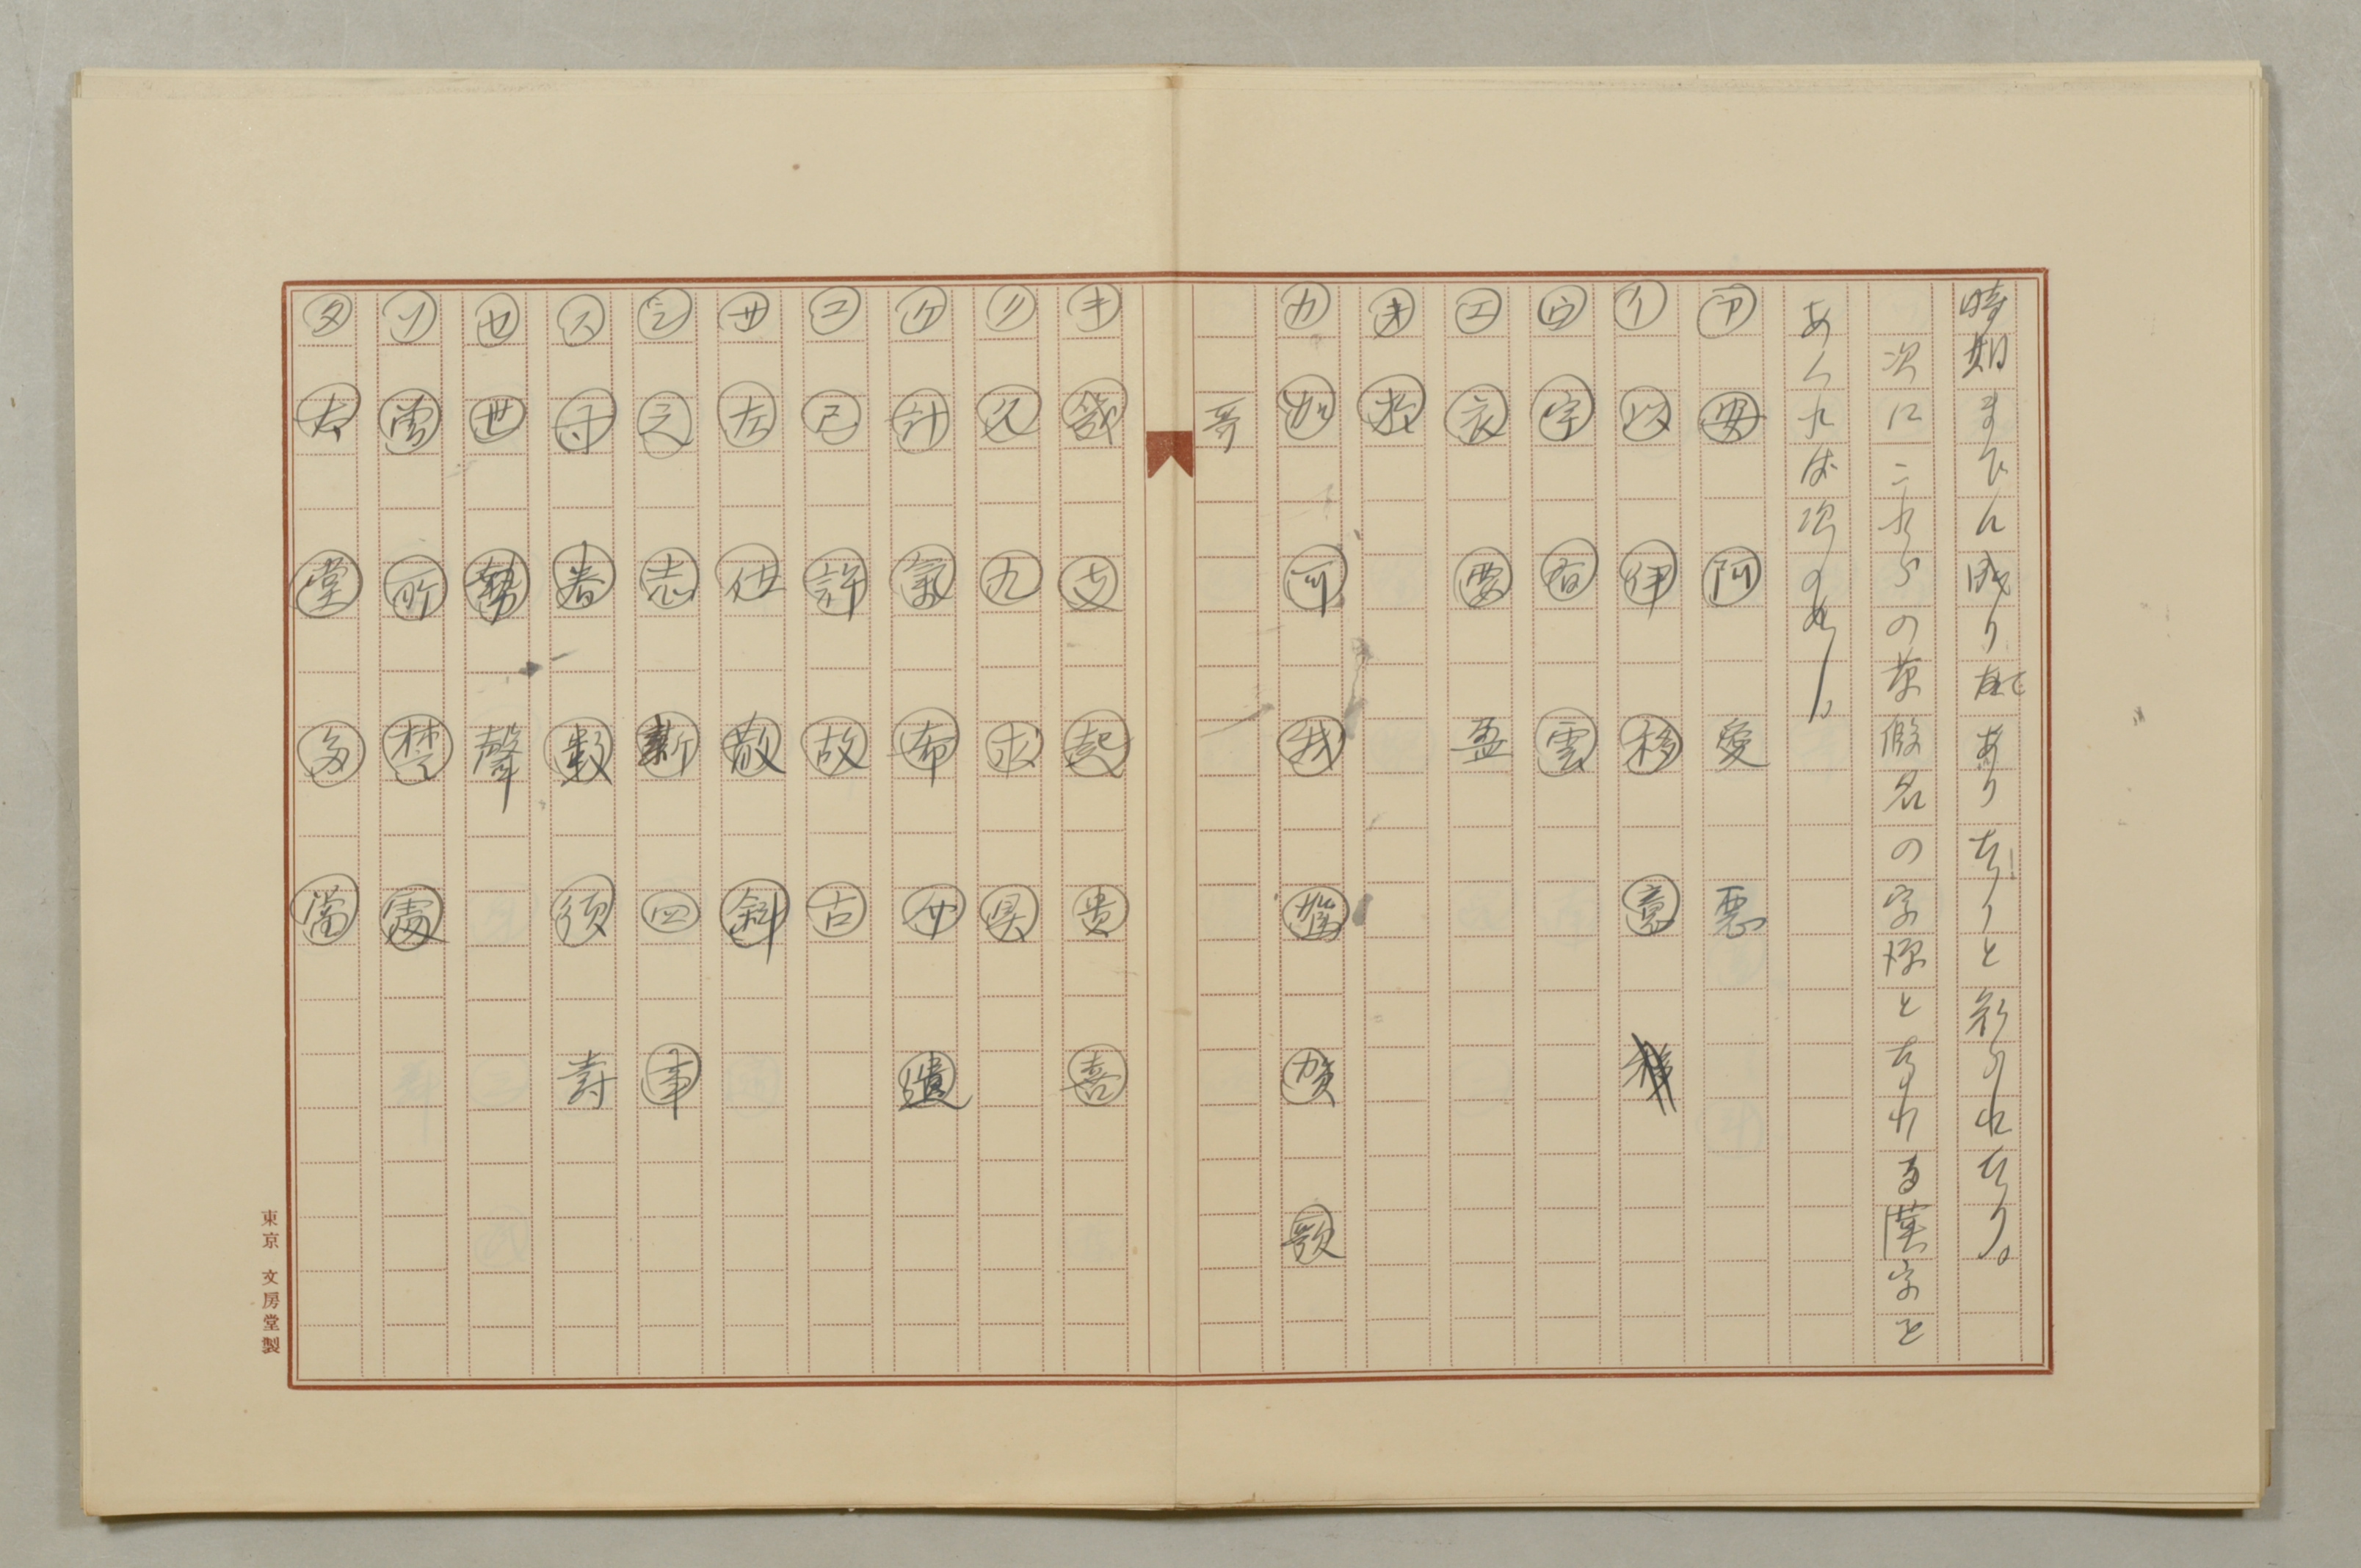 時期までに成り在てありたりと
次にこれらの草假名の字源となれる漢字を
あぐれば次の如し。
ア 安 阿 愛 悪
イ 以 伊 移 意
ウ 宇 有 雲
エ 衣 要 盈
オ 於
カ 加 可 我 駕 賀 歌
哥
キ 幾 支 起 貴 喜
ク 久 九 求 具
ケ 計 氣 希 介 遣
コ 己 許 故 古
サ 左 佐 散 斜
シ 之 志 新 四 事
ス 寸 春 数 須 寿
セ 世 勢 聲
ソ 曽 所 楚 處
タ 太 堂 多 當
東京 文房堂製